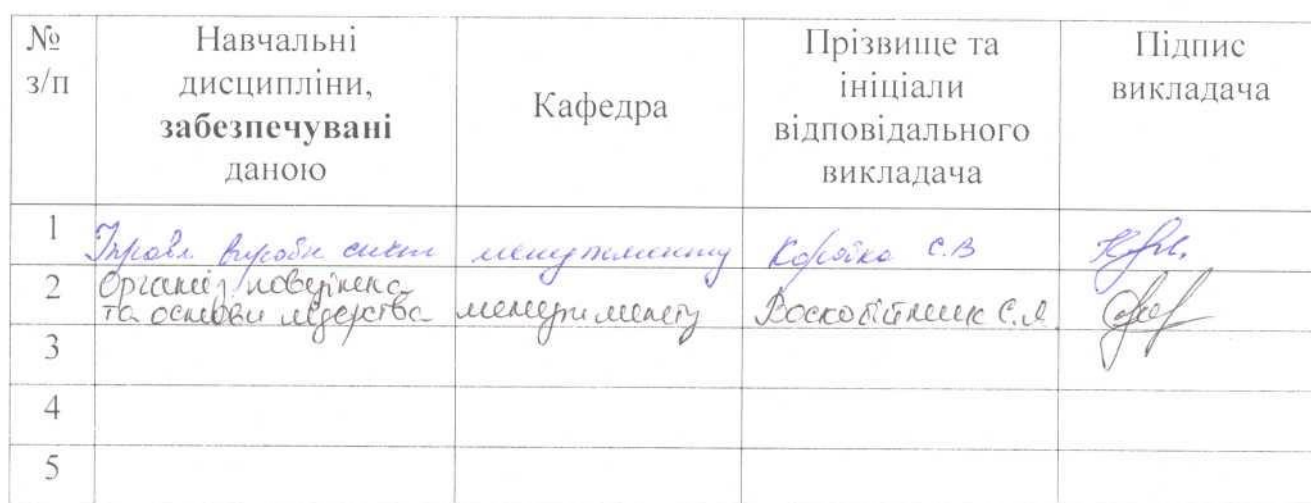 № з/п
Навчальні дисципліни, забезпечувані даною
Кафедра
Прізвище та ініціали відповідального викладача
Підпис викладача
1 виробн систем менеджменту С.В
2 Організ. поведінка та основи лідерства менеджменту Воскобійник С.Л
3
4
5